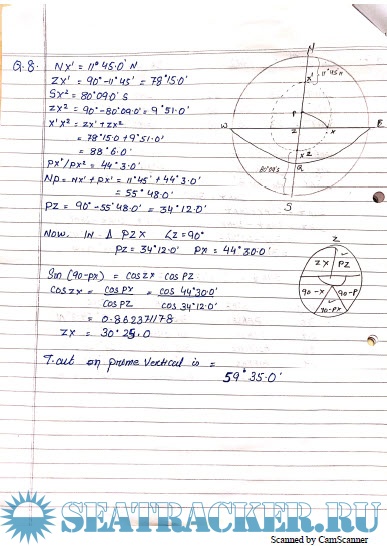 Q.8. NX' = 11°45.0' N
ZX' = 90°-11°45' = 78°15.0'
SX² = 80°09.0' S
ZX² = 90°-80°09.0' = 9°51.0'
X'X² = ZX'+ZX²
= 78°15.0+9°51.0'
= 88°6.0'
PX'/PX² = 44°3.0'
NP = NX'+PX' = 11°45'+44°3.0'
= 55°48.0'
PZ = 90°-55°48.0' = 34°12.0'
NOW. IN Δ PZX ∠Z=90°
PZ = 34°12.0' PX = 44°30.0'
Sin (90-PX) = COSZX COS PZ
COSZX = COSPX = COS 44°30.0'
COSPZ COS 34°12.0'
= 0.86237178
ZX = 30°25.0
T.alt on prime vertical is =
59°35.0'
N
X'
11°45'N
P
W
Z
X
E
X2
Q
80°09'S
S
Z
ZX
PZ
90-X
90-P
90-PX
SEATRACKER.RU
Scanned by CamScanner